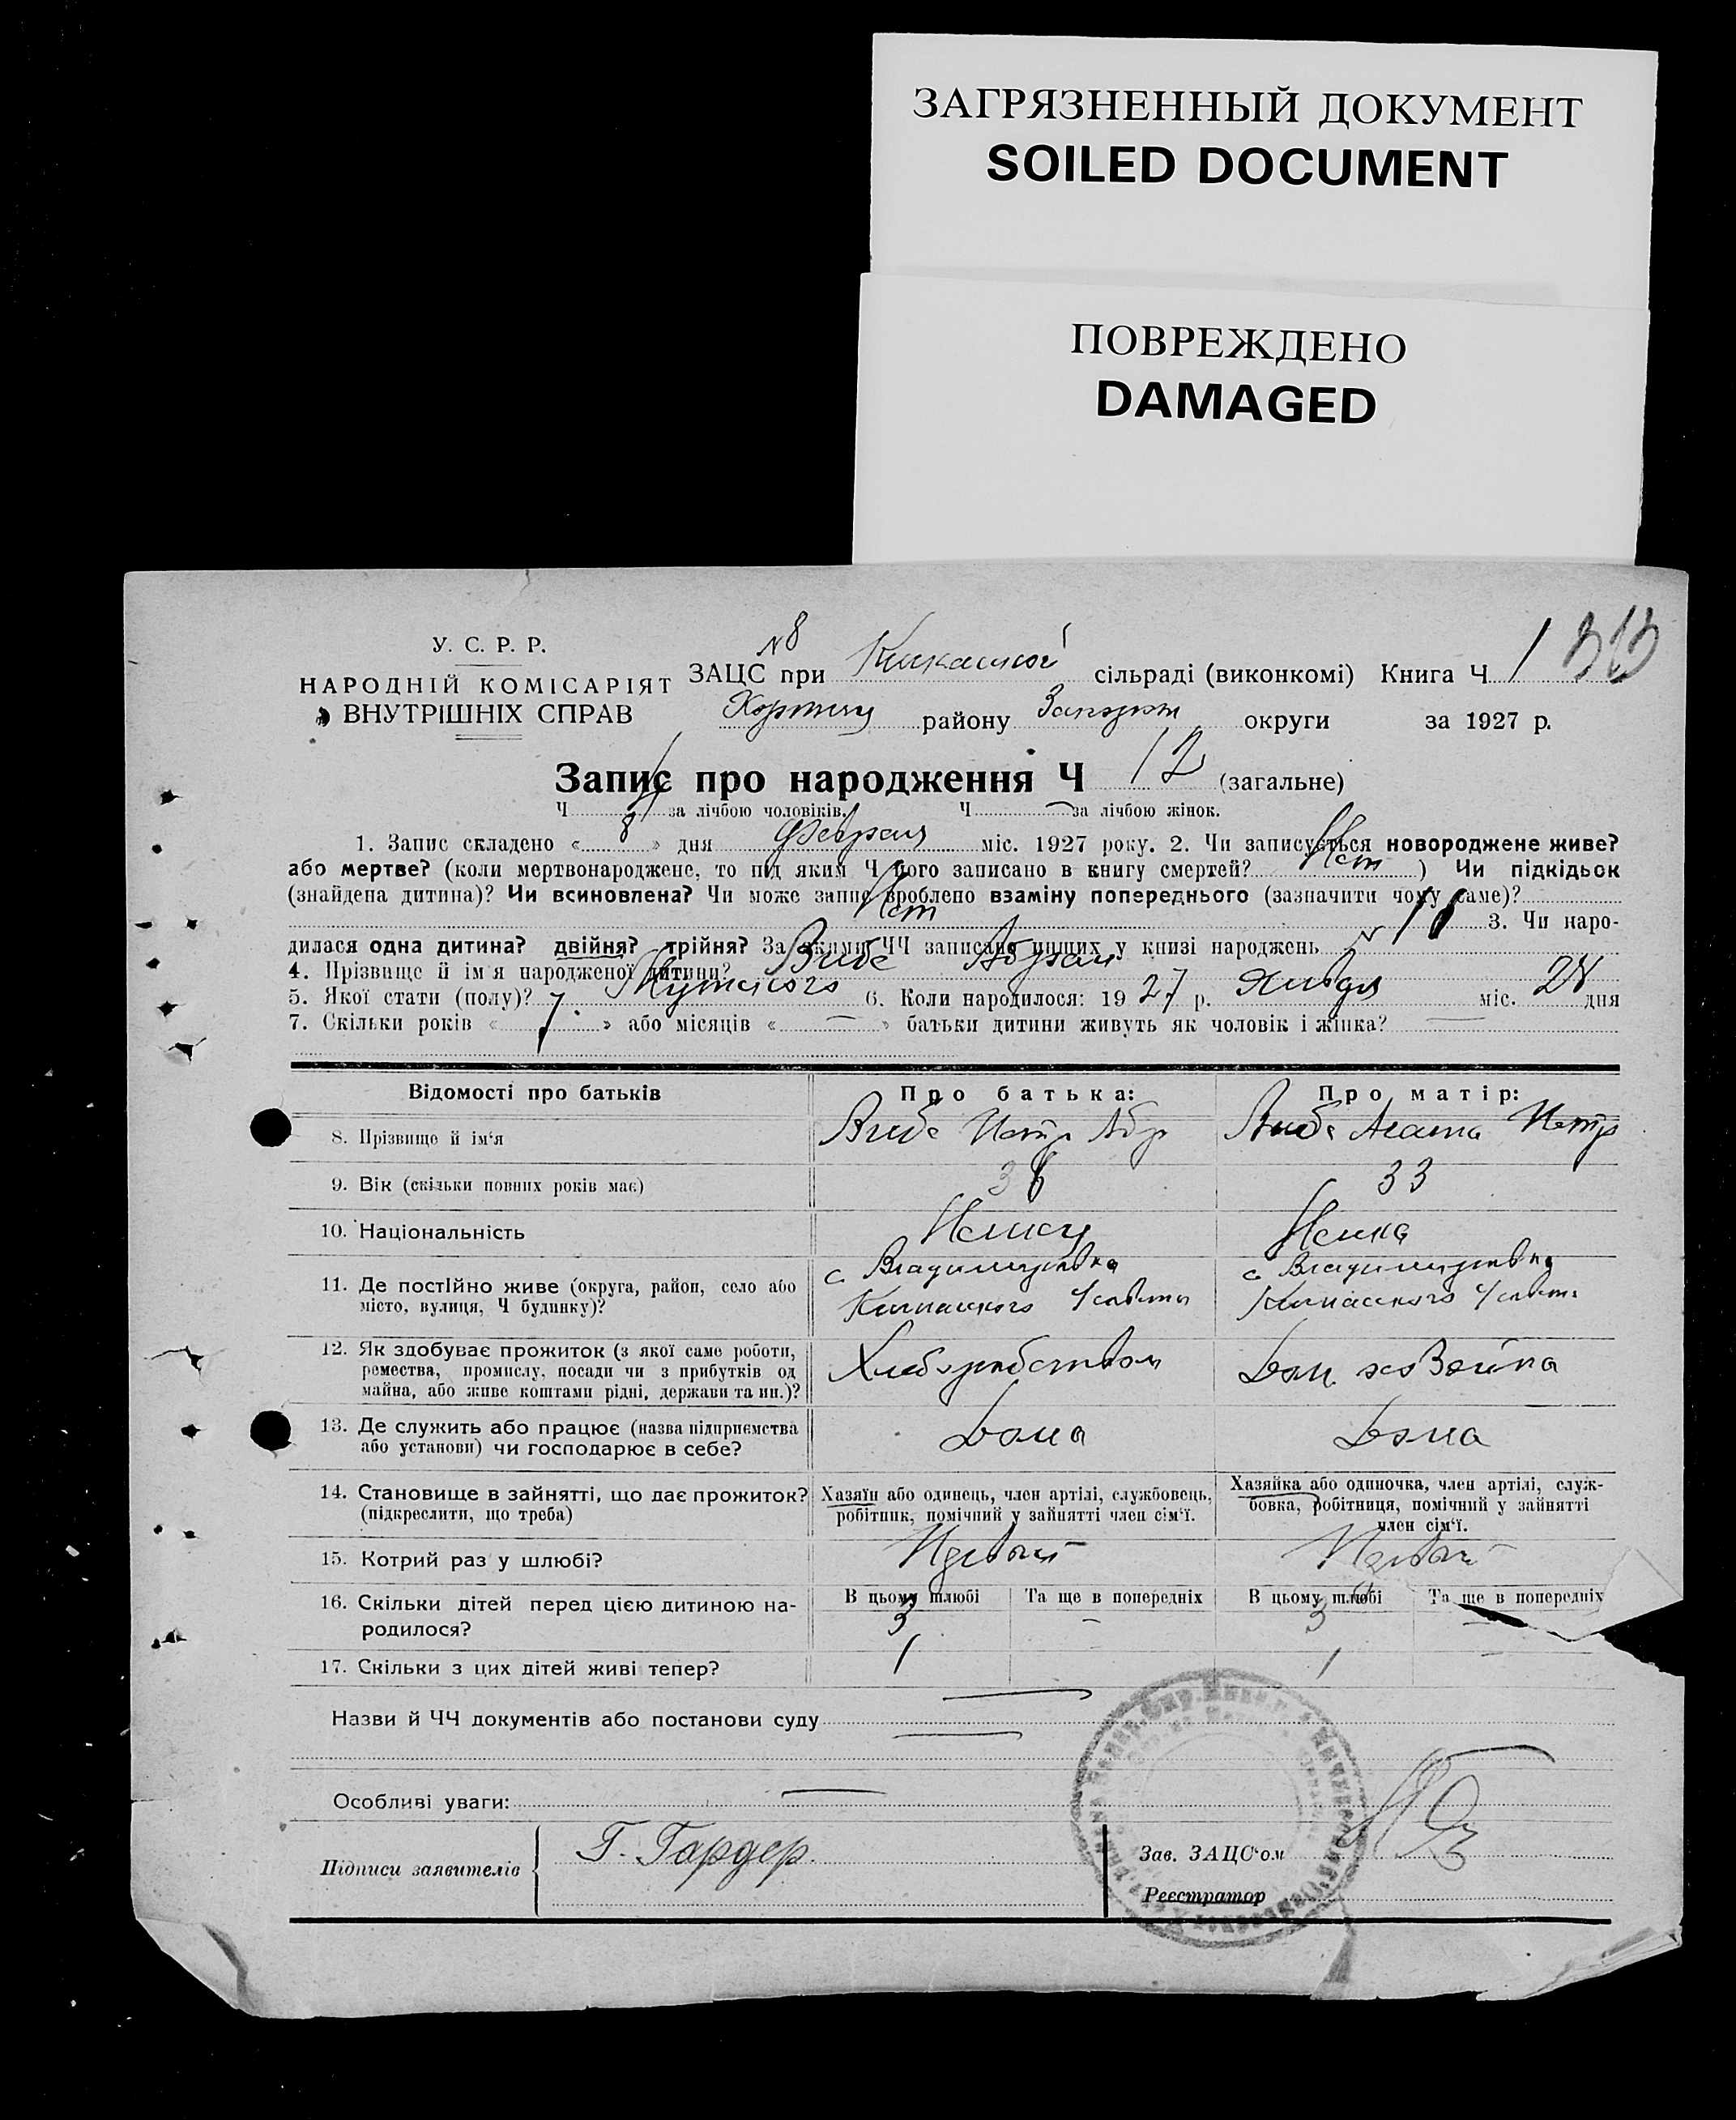 ЗАГРЯЗНЕННЫЙ ДОКУМЕНТ
SOILED DOCUMENT
ПОВРЕЖДЕНО
DAMAGED
У. С. Р. Р.
НАРОДНІЙ КОМІСАРІЯТ
ВНУТРІШНІХ СПРАВ
N 8
ЗАЦС при сільраді (виконкомі) Книга Ч 1 313
Хортиц району Запорож округи за 1927 р.
Запис про народження Ч 12 (загальне)
Ч за лічбою чоловіків. Ч — за лічбою жінок.
1. Запис складено « 8 » дня Февраля міс. 1927 року. 2. Чи записується новороджене живе?
або мертве? (коли мертвонароджене, то під яким Ч його записано в книгу смертей? Нет ) Чи підкідьок
(знайдена дитина)? Чи всиновлена? Чи може запис вроблено взаміну попереднього (зазначити чому саме)?
Нет 3. Чи наро-
дилася одна дитина? двійня? трійня? За якими ЧЧ записано инших у книзі народжень N 11
4. Прізвище й ім'я народженої дитини? Вибе Абрам
5. Якої стати (полу)? Мужского 6. Коли народилося: 1927 р. Января міс. 28 дня
7. Скільки років « 7 » або місяців « — » батьки дитини живуть як чоловік і жінка? —
Відомості про батьків Про батька: Про матір:
8. Прізвище й ім'я Вибе Петр Абр Вибе Агата Петр
9. Вік (скільки повних років має) 36 33
10. Національність Немец Немка
11. Де постійно живе (округа, район, село або місто, вулиця, Ч будинку)?
с Владимировка с Владимировка
12. Як здобуває прожиток (з якої саме роботи,
ремества, промислу, посади чи з прибутків од
майна, або живе коштами рідні, держави та ин.)?
Хлеборобством Дом хозяйка
13. Де служить або працює (назва підприємства
або установи) чи господарює в себе?
Дома Дома
14. Становище в зайнятті, що дає прожиток?
(підкреслити, що треба)
Хазяїн або одинець, член артілі, службовець,
робітник, помічний у зайнятті член сім'ї.
Хазяйка або одиночка, член артілі, служ-
бовка, робітниця, помічний у зайнятті
член сім'ї.
15. Котрий раз у шлюбі? Первый Первый
16. Скільки дітей перед цією дитиною на-
родилося?
В цьому шлюбі Та ще в попередніх В цьому шлюбі Та ще в попередніх
3 — 3 —
17. Скільки з цих дітей живі тепер? 1 1 —
Назви й ЧЧ документів або постанови суду —
Особливі уваги: —
Підписи заявителів Г. Гардер.
Зав. ЗАЦС'ом
Реєстратор